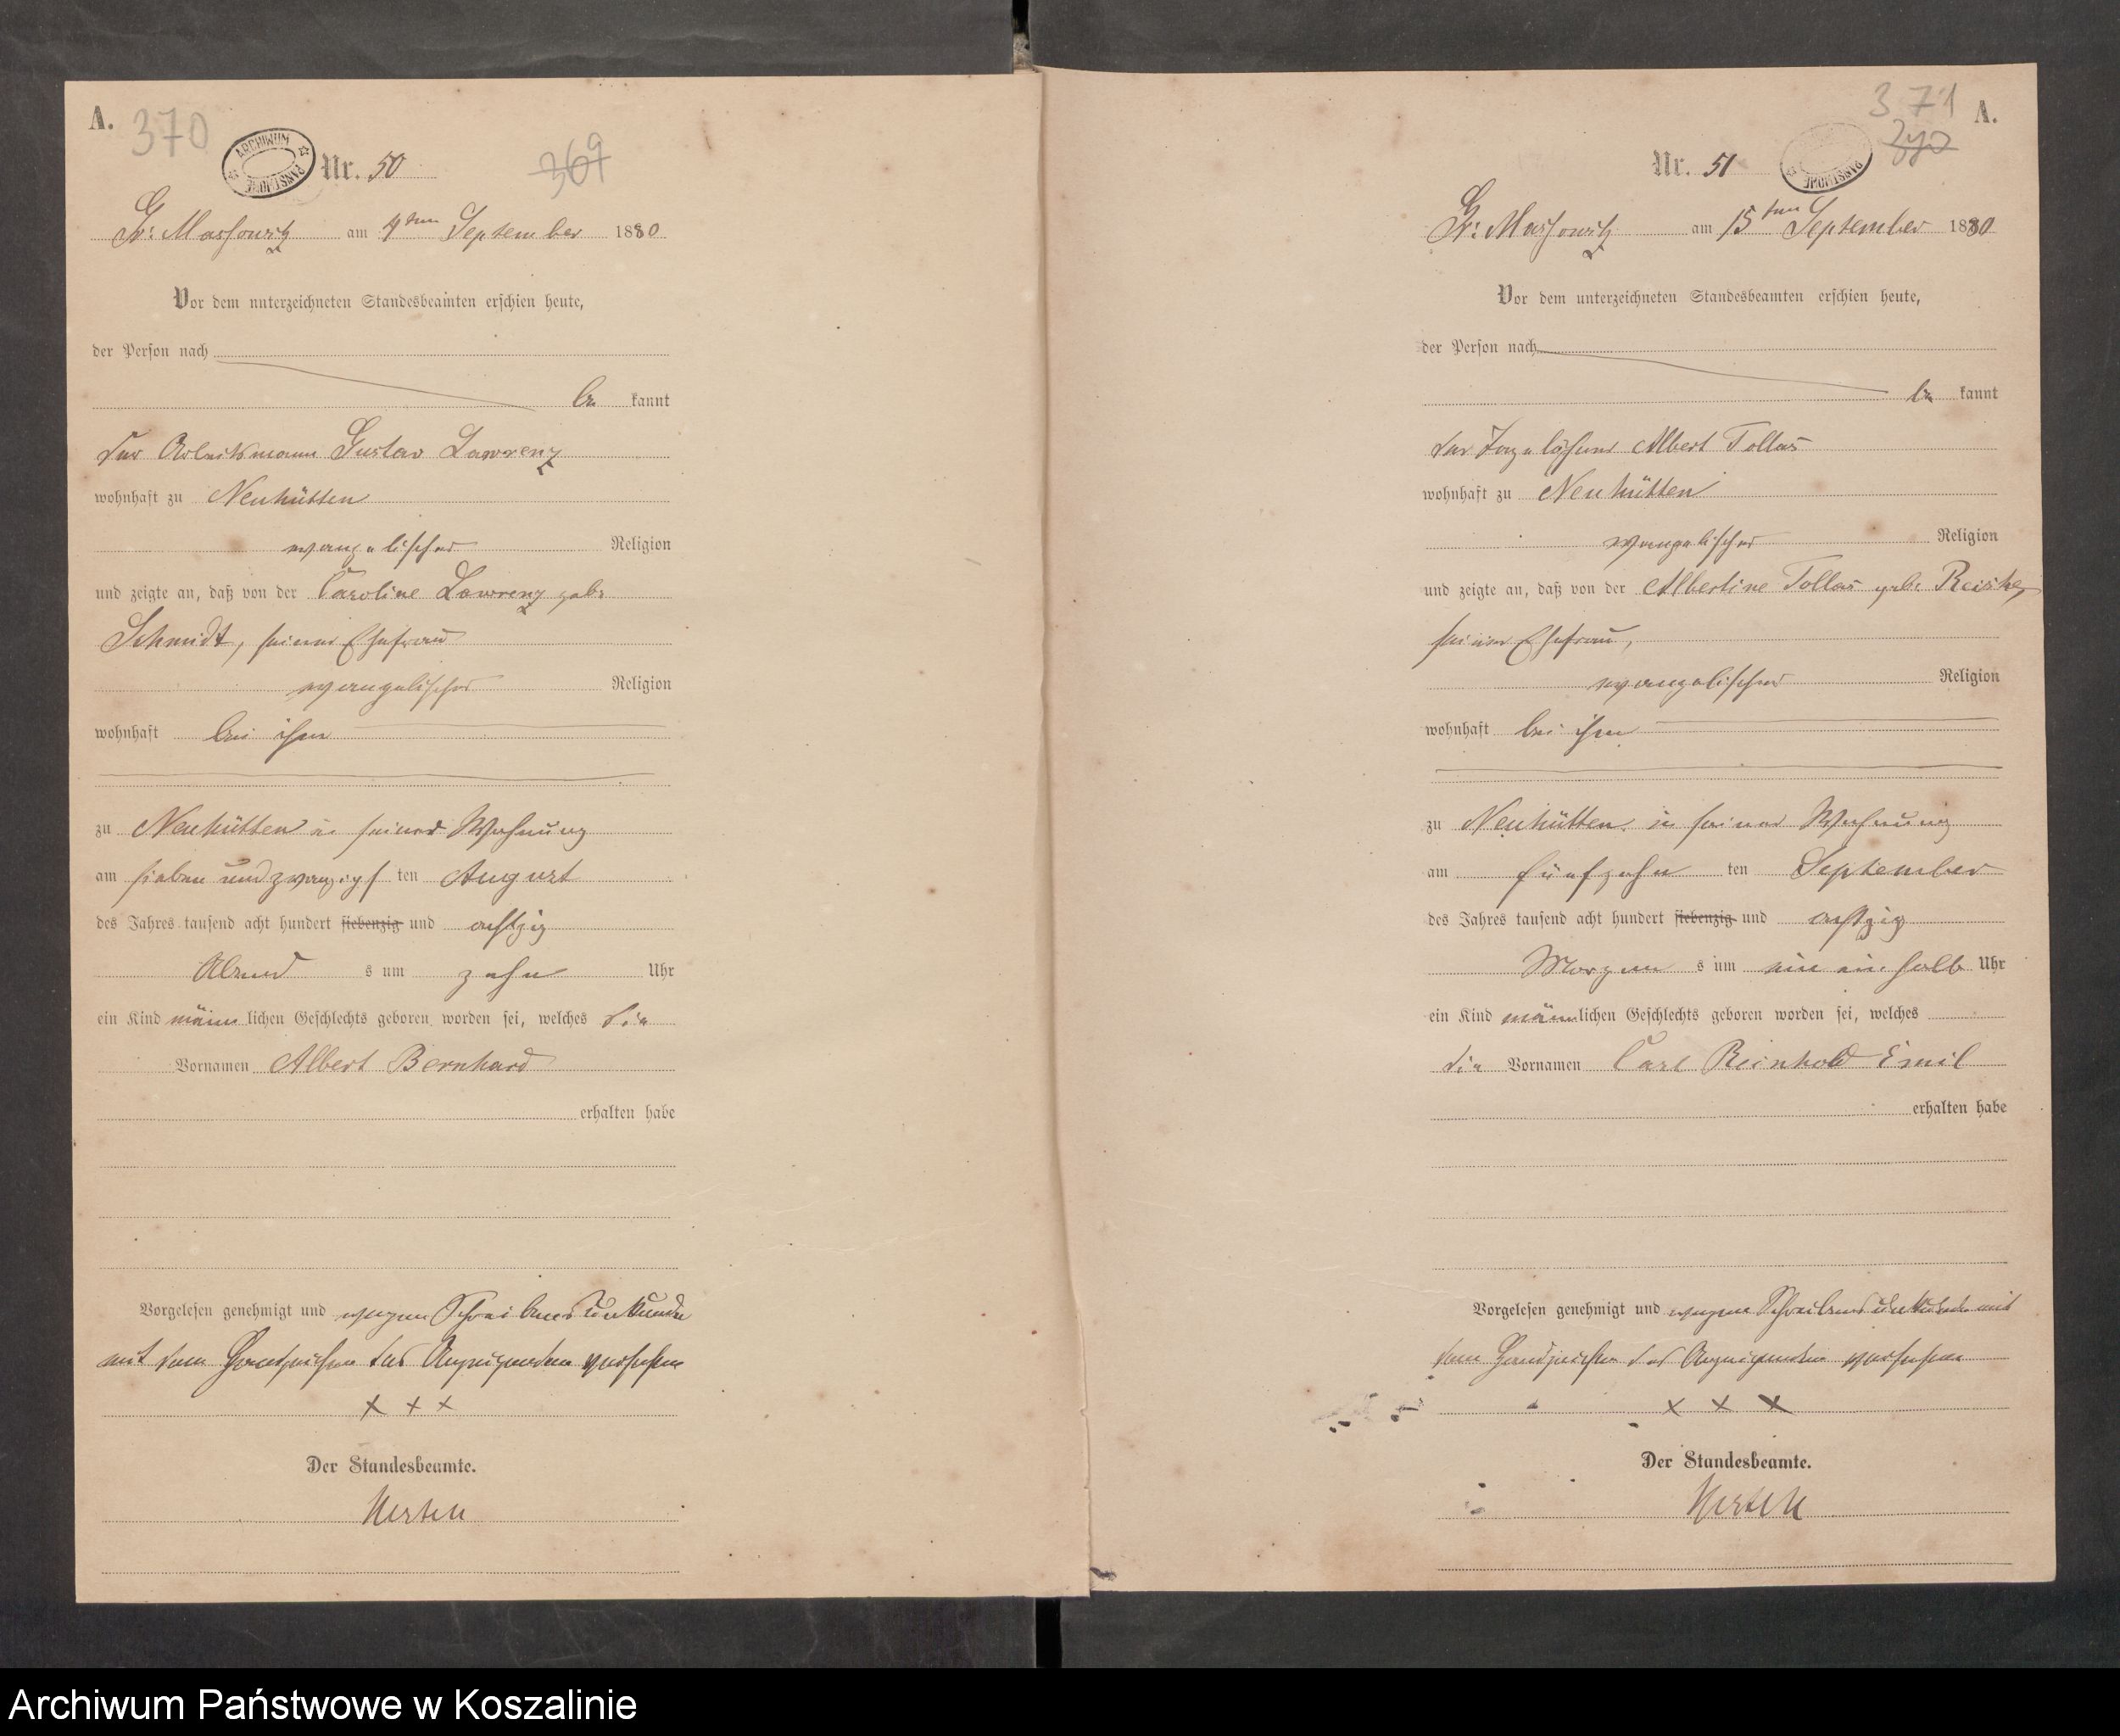 A. 370
ARCHIWUM PAŃSTWOWE
Nr. 50 369
Gr: Massowitz am 4ten September 1880
Vor dem unterzeichneten Standesbeamten erschien heute,
der Person nach
be kannt
der Arbeitsmann Gustav Lawrenz
wohnhaft zu Neuhütten
evangelischer Religion
und zeigte an, daß von der Caroline Lawrenz geb:
Schmidt, seiner Ehefrau
evangelischer Religion
wohnhaft bei ihm
zu Neuhütten in seiner Wohnung
am sieben und zwanzigs ten August
des Jahres tausend acht hundert siebenzig und achtzig
Abend s um zehn Uhr
ein Kind männ lichen Geschlechts geboren worden sei, welches die
Vornamen Albert Bernhard
erhalten habe
Vorgelesen genehmigt und wegen Schreibensunkunde
mit dem Handzeichen des Anzeigenden versehen
× × ×
Der Standesbeamte.
371 A.
370
Nr. 51
PAŃSTWOWE
Gr: Massowitz am 15ten September 1880
Vor dem unterzeichneten Standesbeamten erschien heute,
der Person nach
be kannt
der Tagelöhner Albert Tollas
wohnhaft zu Neuhütten
evangelischer Religion
und zeigte an, daß von der Albertine Tollas geb: Reiske,
seiner Ehefrau,
evangelischer Religion
wohnhaft bei ihm
zu Neuhütten in seiner Wohnung
am fünfzehn ten September
des Jahres tausend acht hundert siebenzig und achtzig
Morgen s um ein ein halb Uhr
ein Kind männlichen Geschlechts geboren worden sei, welches
die Vornamen Carl Reinhold Emil
erhalten habe
Vorgelesen genehmigt und wegen Schreibensunkunde mit
dem Handzeichen des Anzeigenden versehen
× × ×
Der Standesbeamte.
Archiwum Państwowe w Koszalinie